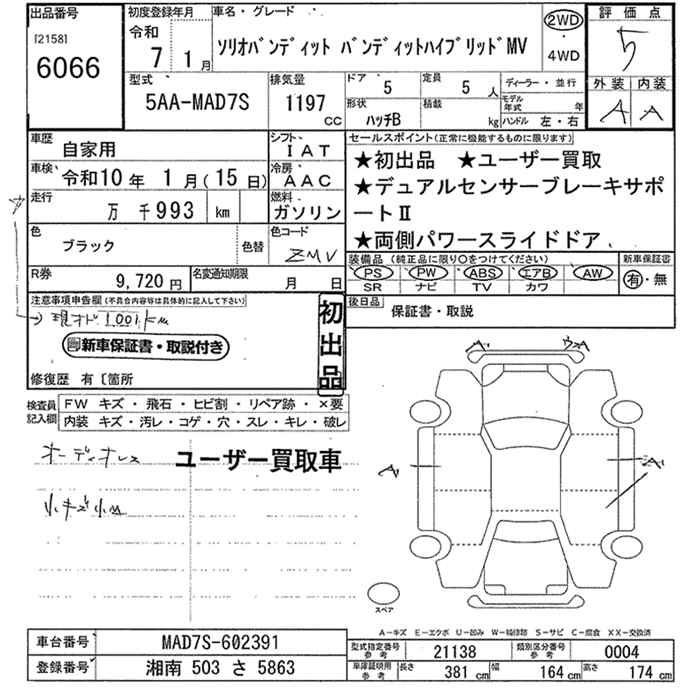 出品番号
[2158]
6066
初度登録年月
令和
7 1月
車名・グレード
ソリオバンディット バンディットハイブリッドMV
2WD
・
4WD
評価点
5
外装 内装
A A
型式
5AA-MAD7S
排気量
1197 CC
ドア 5
定員 5 人
形状 ハッチB
積載 kg
ディーラー・並行
モデル年式 年
ハンドル 左・右
車歴 自家用
シフト IAT
車検 令和10年 1月(15日)
冷房 AAC
走行 万 千993 km
燃料 ガソリン
色 ブラック
色替
色コード ZMV
R券 9,720円
名変通知期限 月 日
セールスポイント(正常に機能するものに限ります)
★初出品 ★ユーザー買取
★デュアルセンサーブレーキサポ
ートⅡ
★両側パワースライドドア
装備品(純正品に限り○をつけてください)
PS PW ABS エアB AW
SR ナビ TV カワ
新車保証書
有・無
後日品 保証書・取説
注意事項申告欄(不具合内容等は具体的に記入して下さい)
現オド 1.001km
新車保証書・取説付き
初出品
修復歴 有〔箇所
検査員記入欄
FW キズ・飛石・ヒビ割・リペア跡・×要
内装 キズ・汚レ・コゲ・穴・スレ・キレ・破レ
オーディオレス
ユーザー買取車
小キズ小凹
A
A
スペア
A-キズ E-エクボ U-凹み W-補修跡 S-サビ C-腐食 XX-交換済
車台番号 MAD7S-602391
登録番号 湘南 503 さ 5863
型式指定番号 参考 21138
類別区分番号 参考 0004
車庫証明用 参考 長さ 381 cm 幅 164 cm 高さ 174 cm